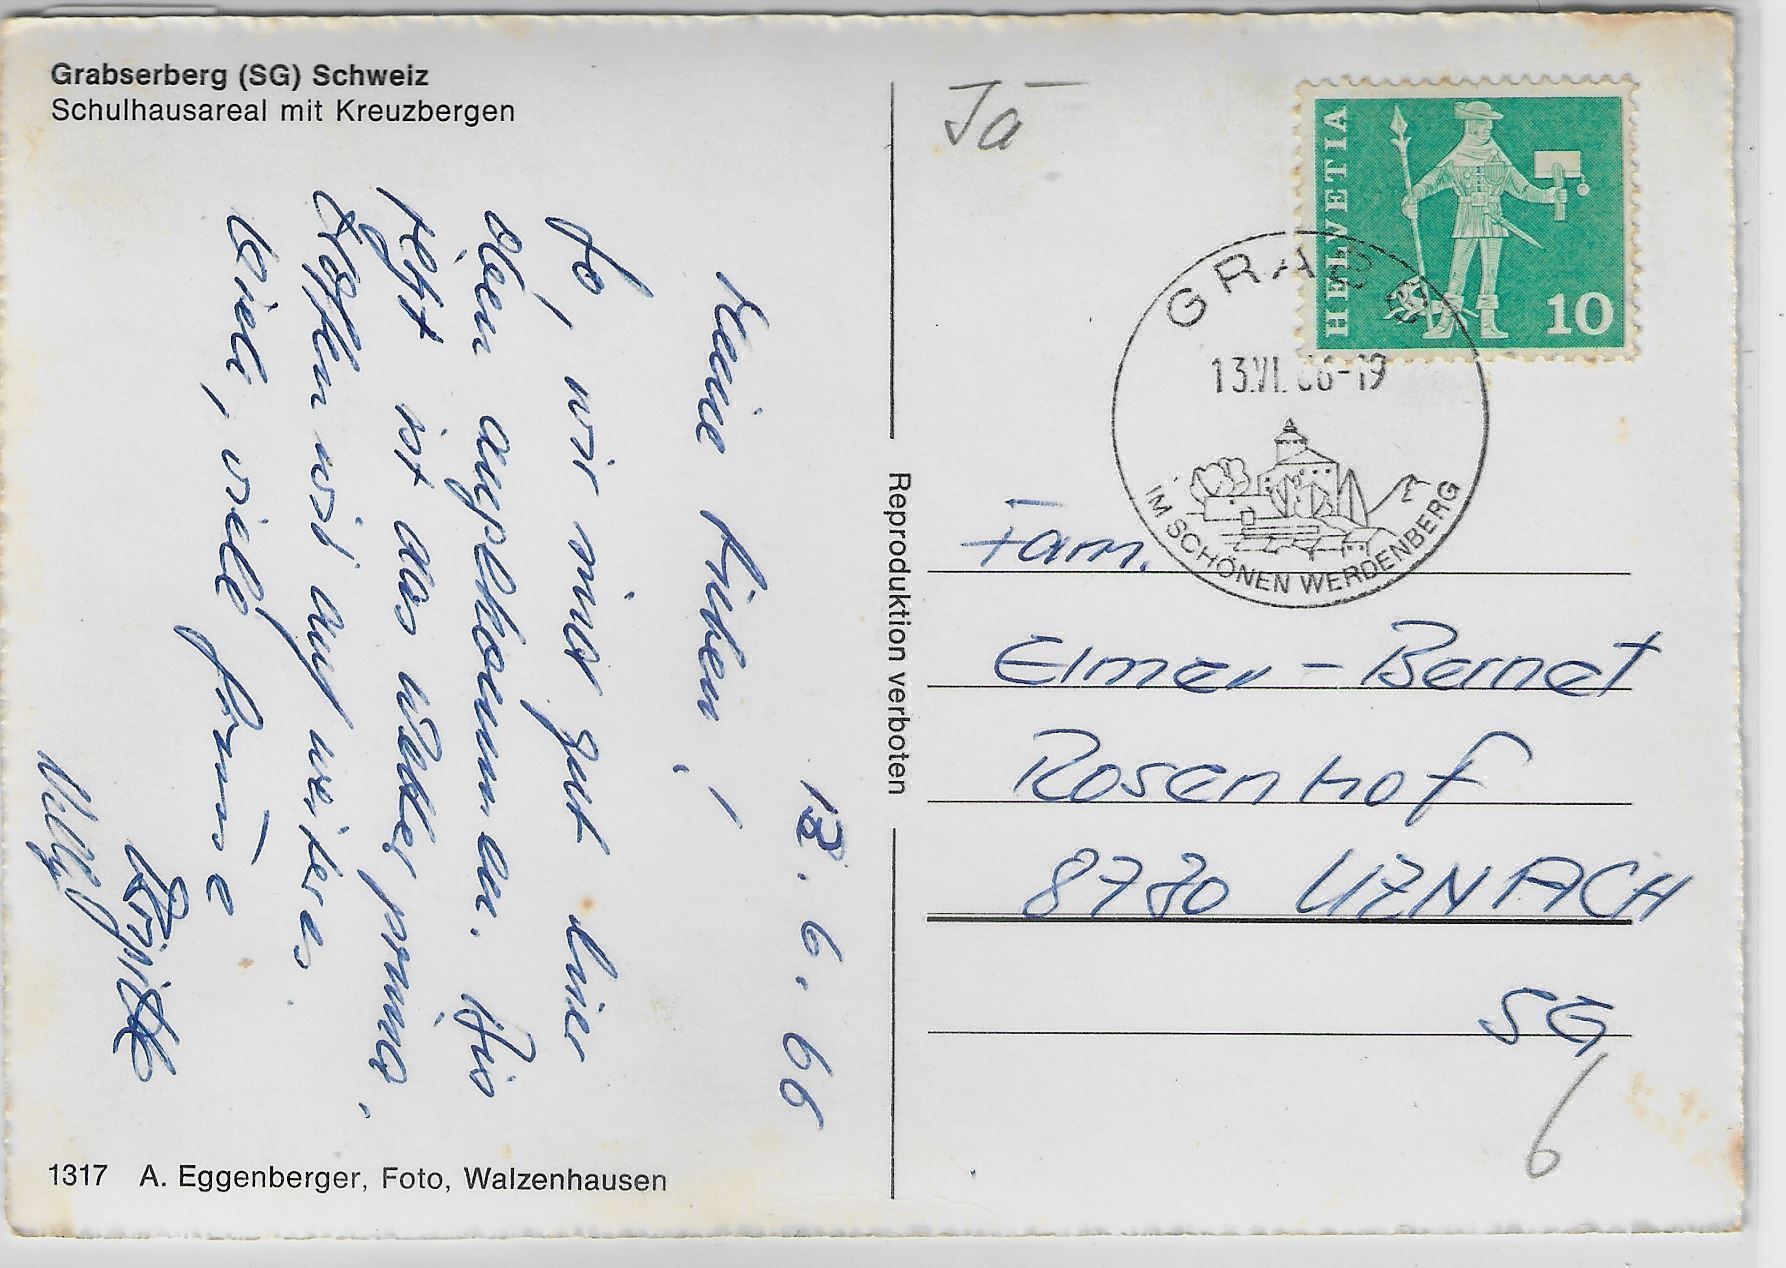 Grabserberg (SG) Schweiz
Schulhausareal mit Kreuzbergen
13. 6. 66
Meine Lieben!
So, wir sind gut hier
oben angekommen. Bis
jetzt ist das Wetter prima,
hoffen wir auf weiteres.
Viele, viele Grüsse
Brigitte
Willy
1317 A. Eggenberger, Foto, Walzenhausen
Reproduktion verboten
Ja
HELVETIA
10
GRABS
13.VI. 66-19
IM SCHÖNEN WERDENBERG
Fam.
Elmer-Bernet
Rosenhof
8730 UZNACH
SG
6